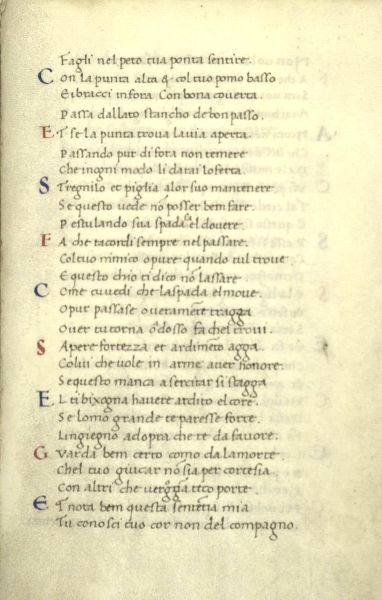 Fagli nel peto tua ponta sentire.
Con la punta alta & col tuo pomo basso
E ibracci infora Con bona coverta.
Passa dallato stancho de bon passo.
Et se la punta trova lavia aperta.
Passando pur di fora non temere
Che inogni modo li darai loferta
Stregnilo et piglia alor suo mantenere
Se questo vede nō posser ben fare.
Pestulando sua spada fa el dovere.
Fa che tacordi sempre nel passare.
Col tuo nimico opure quando tul trove
E questo chio ti dico nō lassare
Come tu vedi che laspada el move.
O pur passase overamēte tragga
Over tu torna ōdosso fa chel trovi.
Sapere fortezza et ardimēto agga
Colui che vole in arme aver honore.
Se questo manca a sercitar si stagga
El ti bixogna havere ardito el core.
Se lomo grande te paresse forte.
Lingiegno adopra che te da favore.
Guarda bem certo como da la morte.
Chel tuo giucar nō sia per cortesia
Con altri che vergogna teco porte
Et nota bem questa sentētia mia
Tu conosci tuo cor non del compagno.